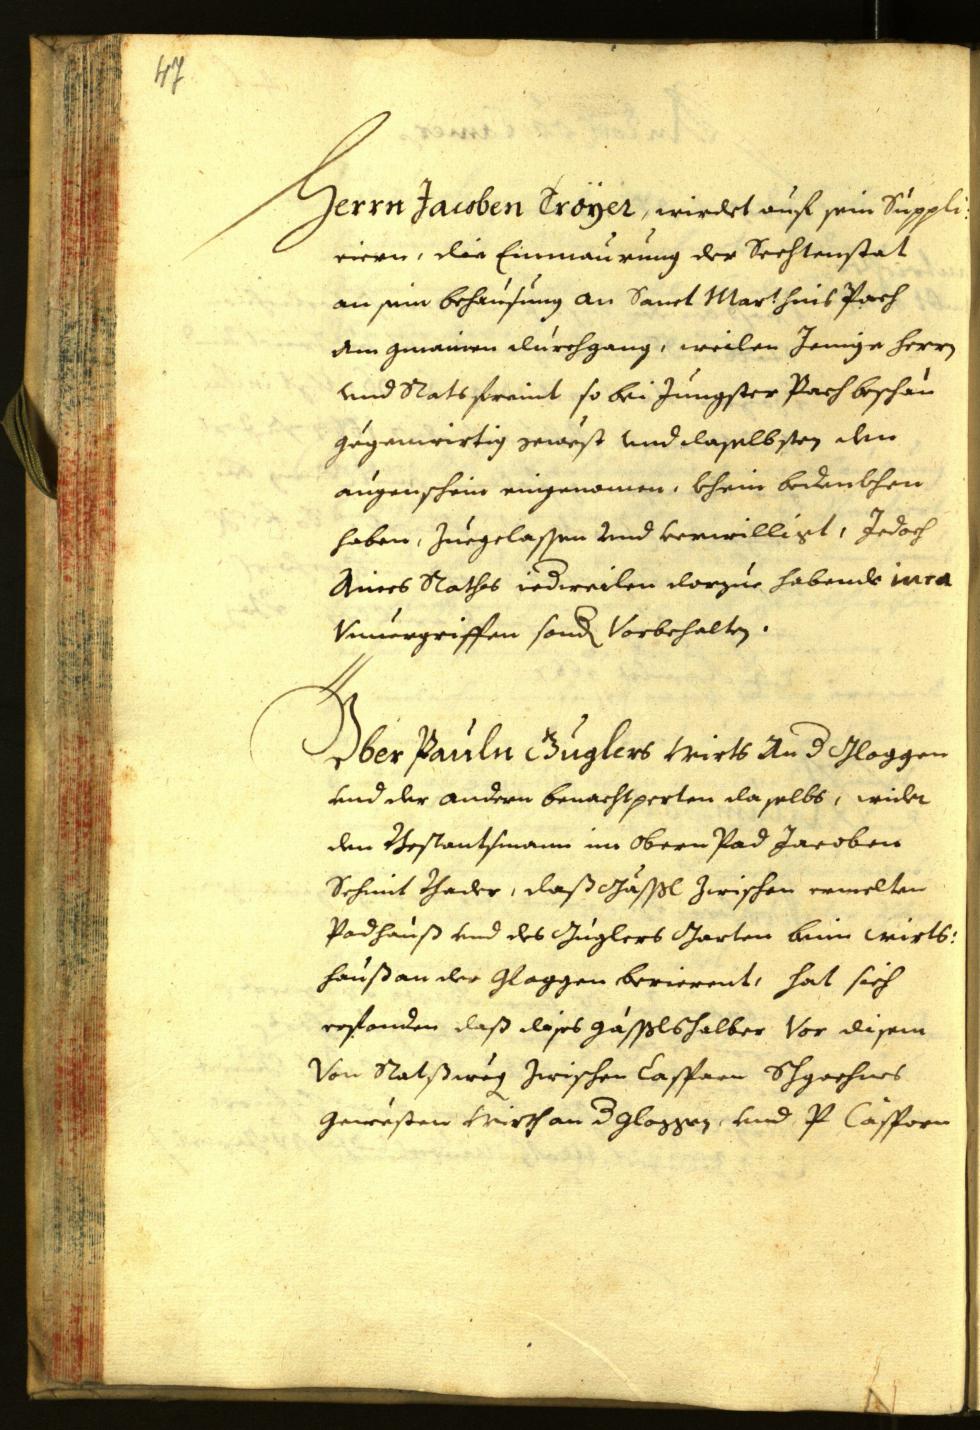 47
Herrn Jacoben Tröyer, wirdet auf sein Suppli:
ciern, die Einmaurung der Sechtenstat
an sein behausung an Sanct Marthins Pach
am gmainen durchgang, weilen Jenige herrn
und Ratsfreint so bei Jungster Pachbeschau
gegenwirtig gewest und daselbsten den
augenschein eingenomen, khein bedenkhen
haben, zuegelassen und verwilligt, Jedoch
Aines Rathes iedweilen darzue habende iura
Unuergriffen sond Vorbehalten.
Über Pauln Guglers Wirts an d Gloggen
und der andern benachtperten daselbs, wider
den Bestantsmann im Obern Pad Jacoben
Schmit Thader, daß Gässl zwischen ermelten
Padhauß und des Guglers Garten beim wirts:
hauß an der Gloggen berierent, hat sich
erfonden daß dises gässls halber Vor disem
Von Ratßweg zwischen Casparn
Gewesten Wirth an d Gloggen, und P Casparn